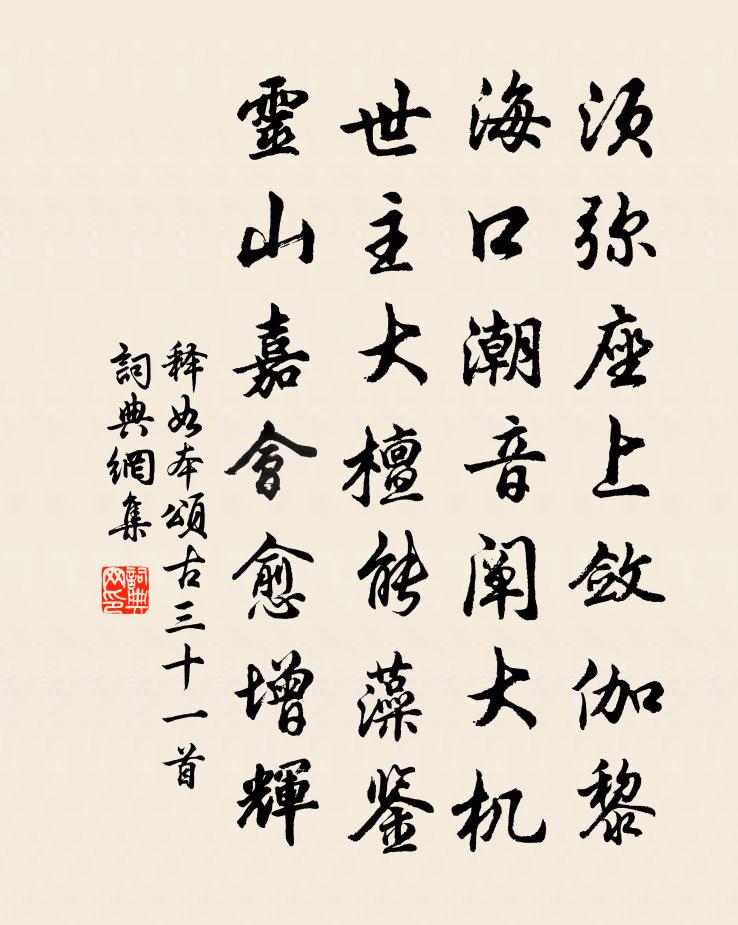 须弥座上敛伽黎
海口潮音阐大机
世主大檀能藻鉴
靈山嘉會愈增輝
释如本頌古三十一首
詞典網集
詞典网印